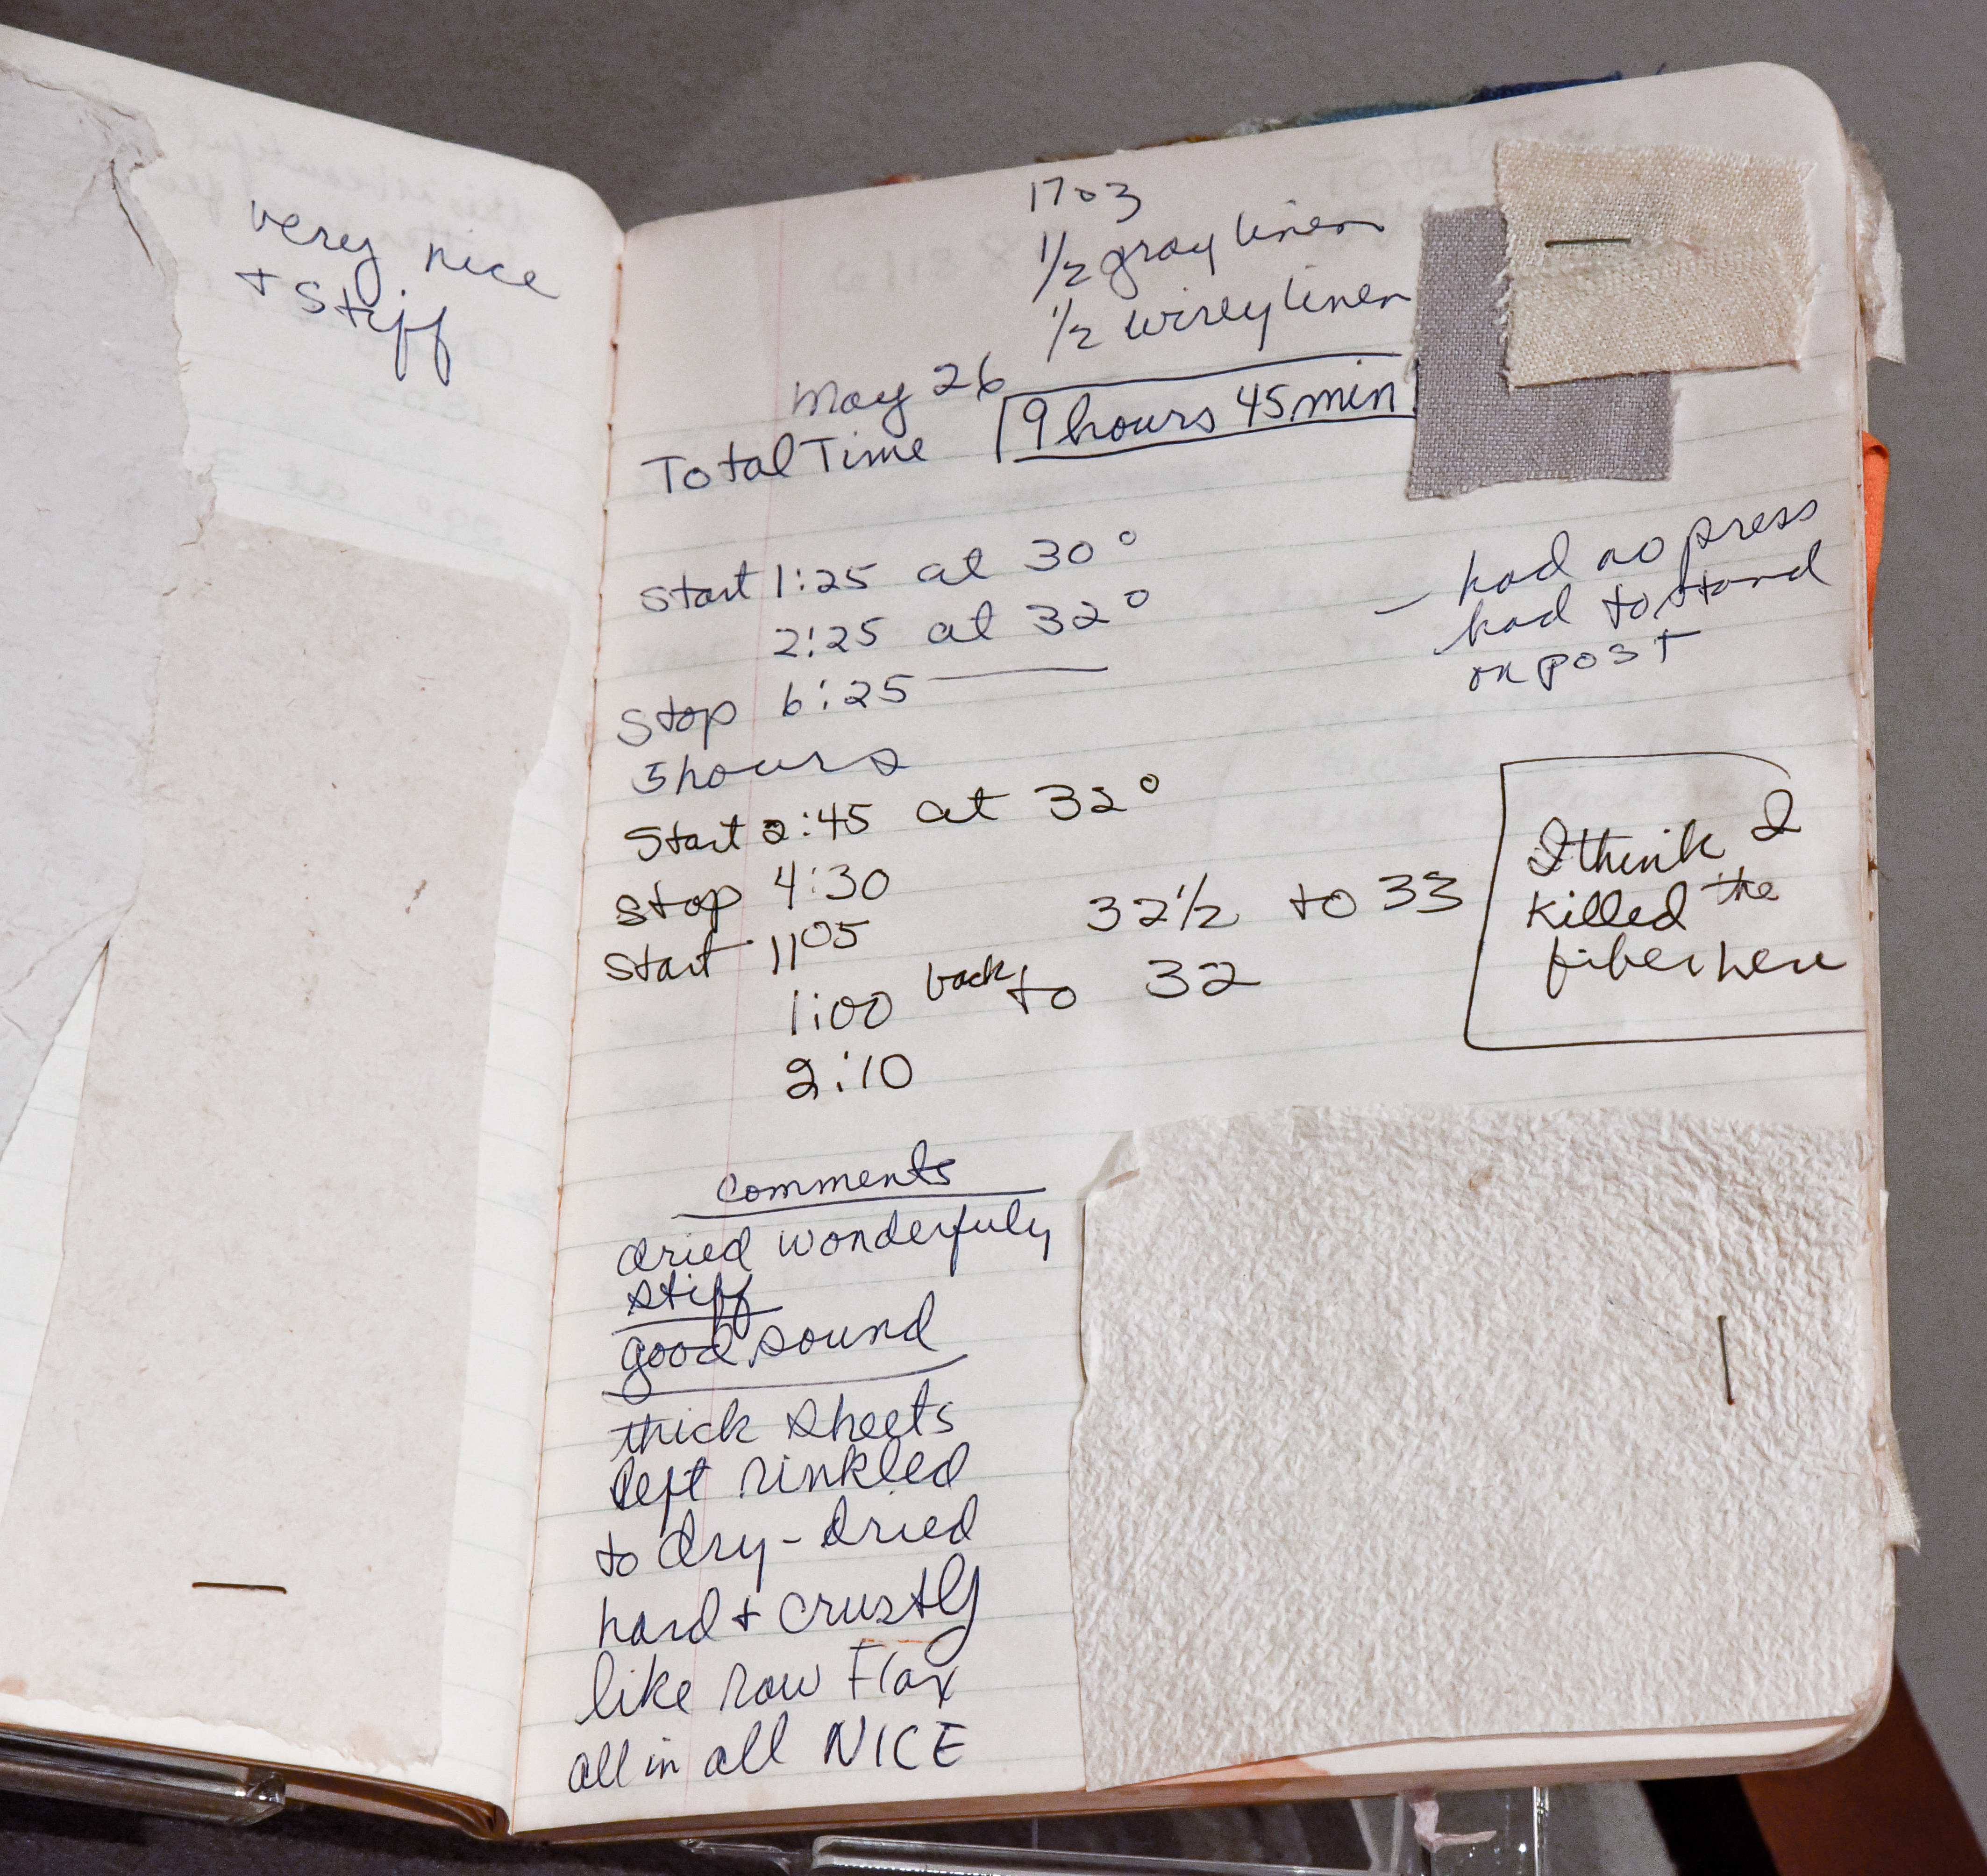 very nice
+ stiff
1703
1/2 gray linen
1/2 wirey linen
May 26
Total Time 9 hours 45 min
Start 1:25 at 30°
2:25 at 32°
Stop 6:25
5 hours
— had no press
had to stand
on post
Start 2:45 at 32°
Stop 4:30
Start 11 05 32 1/2 to 33
1:00 back to 32
2:10
I think I
killed the
fiber here
comments
dried wonderfuly
stiff
good sound
thick sheets
left rinkled
to dry - dried
hard + crustly
like raw Flax
all in all NICE